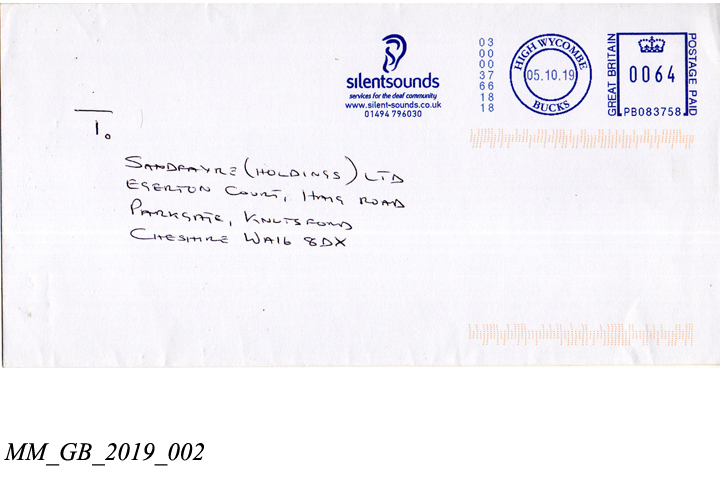 silentsounds
services for the deaf community
www.silent-sounds.co.uk
01494 796030
03
00
00
37
66
18
18
HIGH WYCOMBE
05.10.19
BUCKS
GREAT BRITAIN
0064
PB083758
POSTAGE PAID
To
SANDFAYRE (HOLDINGS) LTD
EGERTON COURT, HAIG ROAD
PARKGATE, KNUTSFORD
CHESHIRE WA16 8DX
MM_GB_2019_002